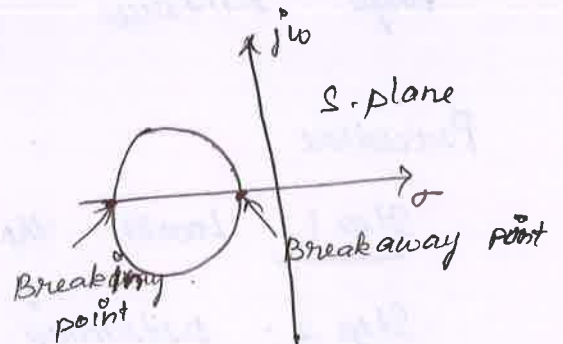 jω
S-plane
σ
Breakaway point
Breakin
point